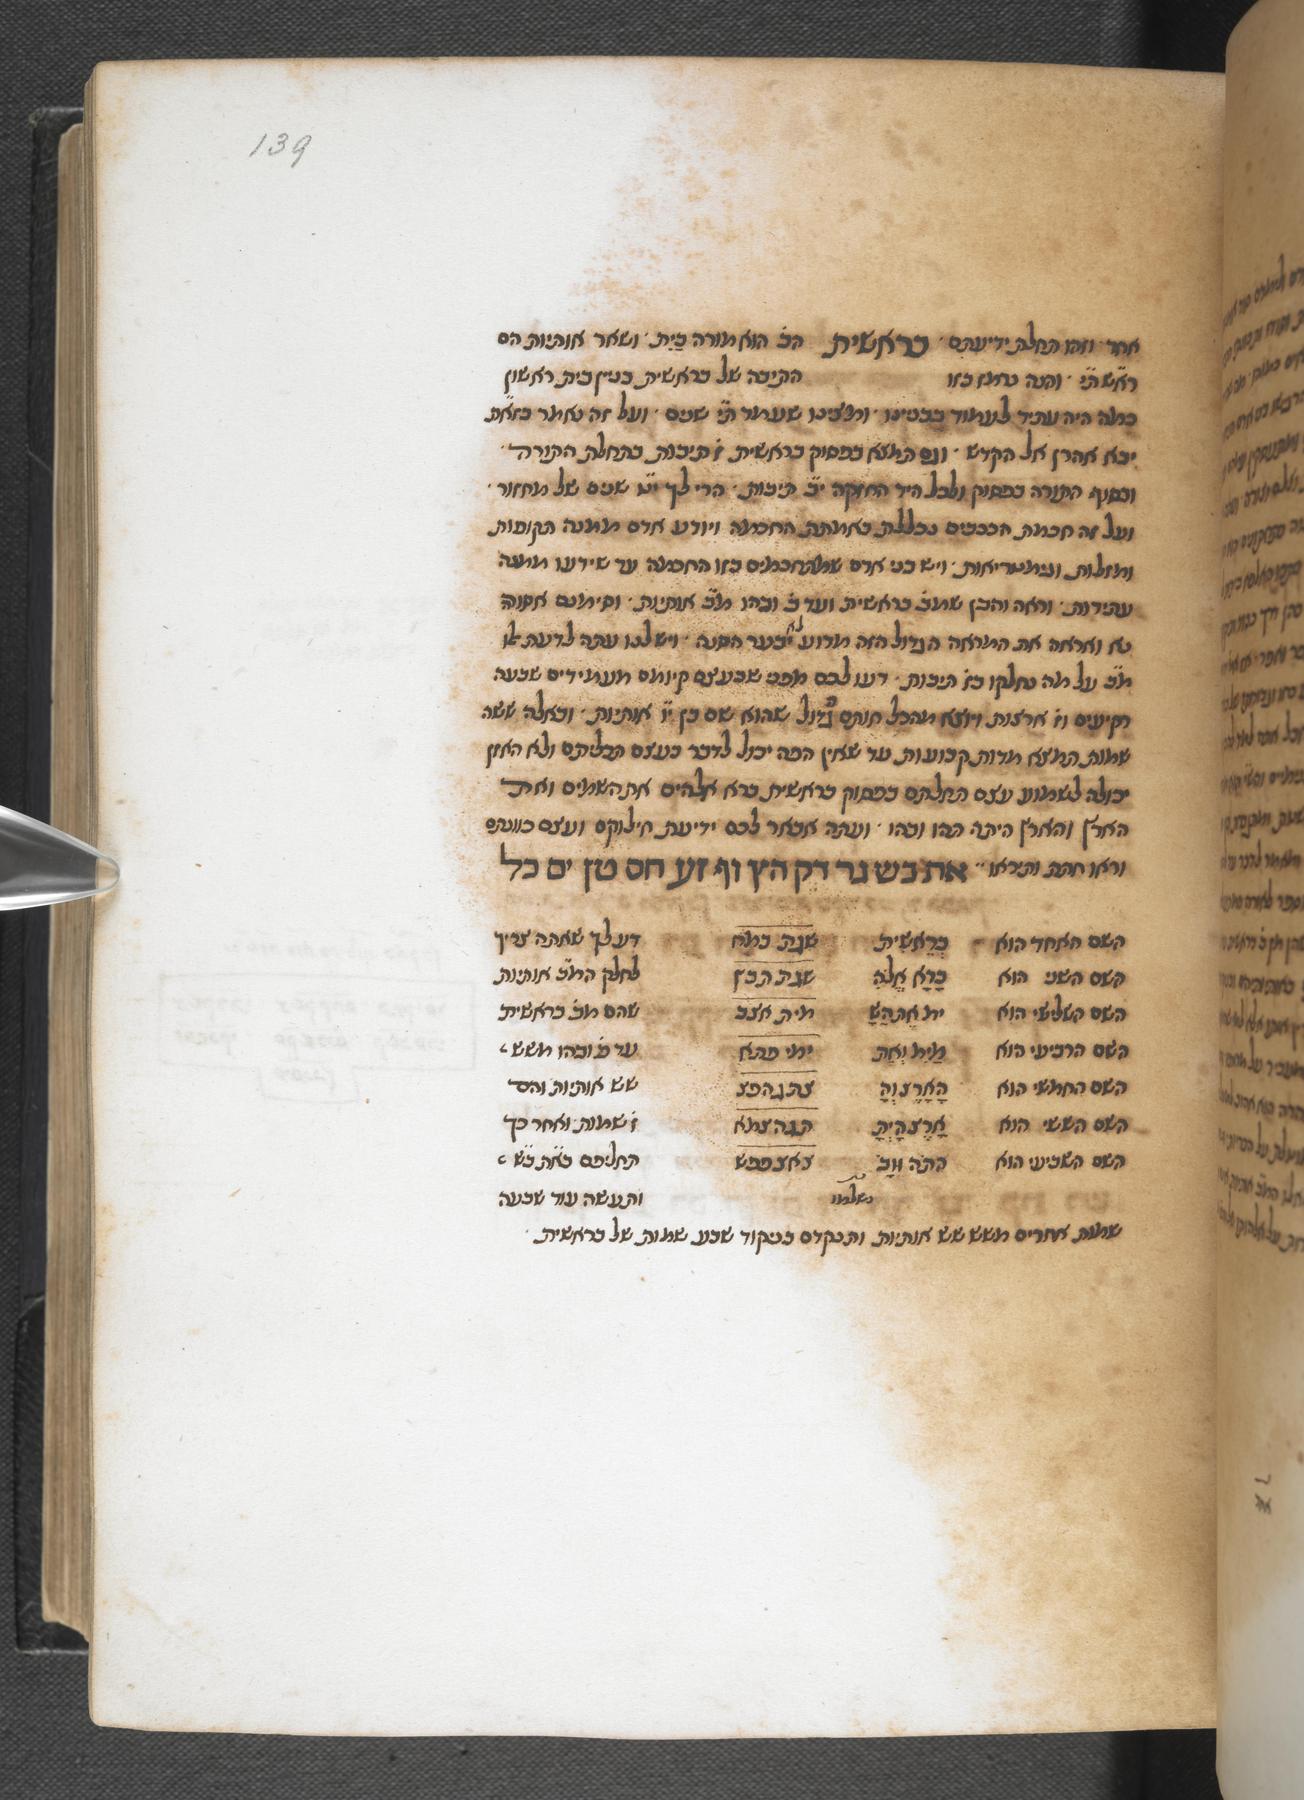 139
אחד וזהו תחלת ידיעתם בראשית הב׳ הוא מורה בַיִת ושאר אותיות הם
ראשת״י והנה נרמז בזו התיבה של בראשית בנין בית ראשון
כמה היה עתיד לעמוד בבניינו ומצינו שעמד ת״י שנים ועל זה נאמר בזאת
יבא אהרן אל הקדש וגם תמצא בפסוק בראשית ז׳ תיבות בתחלת התורה
ובסוף התורה בפסוק ולכל היד החזקה י״ב תיבות הרי לך י״ט שנים של מחזור
ועל זה חכמת הכוכבים נכללת באמתת החכמה ויודע אדם ממנה תקופות
ומזלות וגימטריאות ויש בני אדם שמתחכמים בזו החכמה עד שידעו ממנה
עתידות וראה והבן שמב׳ בראשית ועד ב׳ ובהו מ״ב אותיות וסימנם אסורה
נא ואראה את המראה הגדול הזה מדוע לא יבער הסנה ויש לנו עתה לדעת לו
מ״ב על מה נחלקו בז׳ תיבות דעו לכם מפני שבעצם קיומם מעמידים שבעה
רקיעים וז׳ ארצות ויוצא מהכל חותם גדול שהוא שם בן י״ו אותיות ובאלה ששה
שמות תמצא מדות קבועות עד שאין הפה יכול לדבר בעצם תכליתם ולא האזן
יכולה לשמוע עצם תחלתם בפסוק בראשית ברא אלהים את השמים ואת
הארץ והארץ היתה תהו ובהו ועתה אבאר לכם ידיעת חילוקם ועצם כוונתם
וראו חתת ותיראו את בש גר דק הץ וף זע חס טן ים כל
השם האחד הוא בְרֵאשִׁיתִ שגת במח דע לך שאתה צריך
השם השני הוא בָרָא אֱלֹהִ שגת תבזן לחלק המ״ב אותיות
השם השלישי הוא יִםאֵתהַשָ מית אצב שהם מב׳ בראשית
השם הרביעי הוא מַיִםוְאֵת ימי פתא עד ב׳ ובהו מששׁ
השם החמשי הוא הָאָרֶצוְהָ צתגהפצ שש אותיות והם
השם הששי הוא אָרֶצהָיְתָ תגהצמא ז׳ שמות ואחר כך
השם השביעי הוא התֹהוּוָבֹ צאצפפש תחליפם באת בש
נשלמו ותעשה עוד שבעה
שמות אחרים מששׁ שש אותיות ותנקדם בניקוד שבע שמות של בראשית